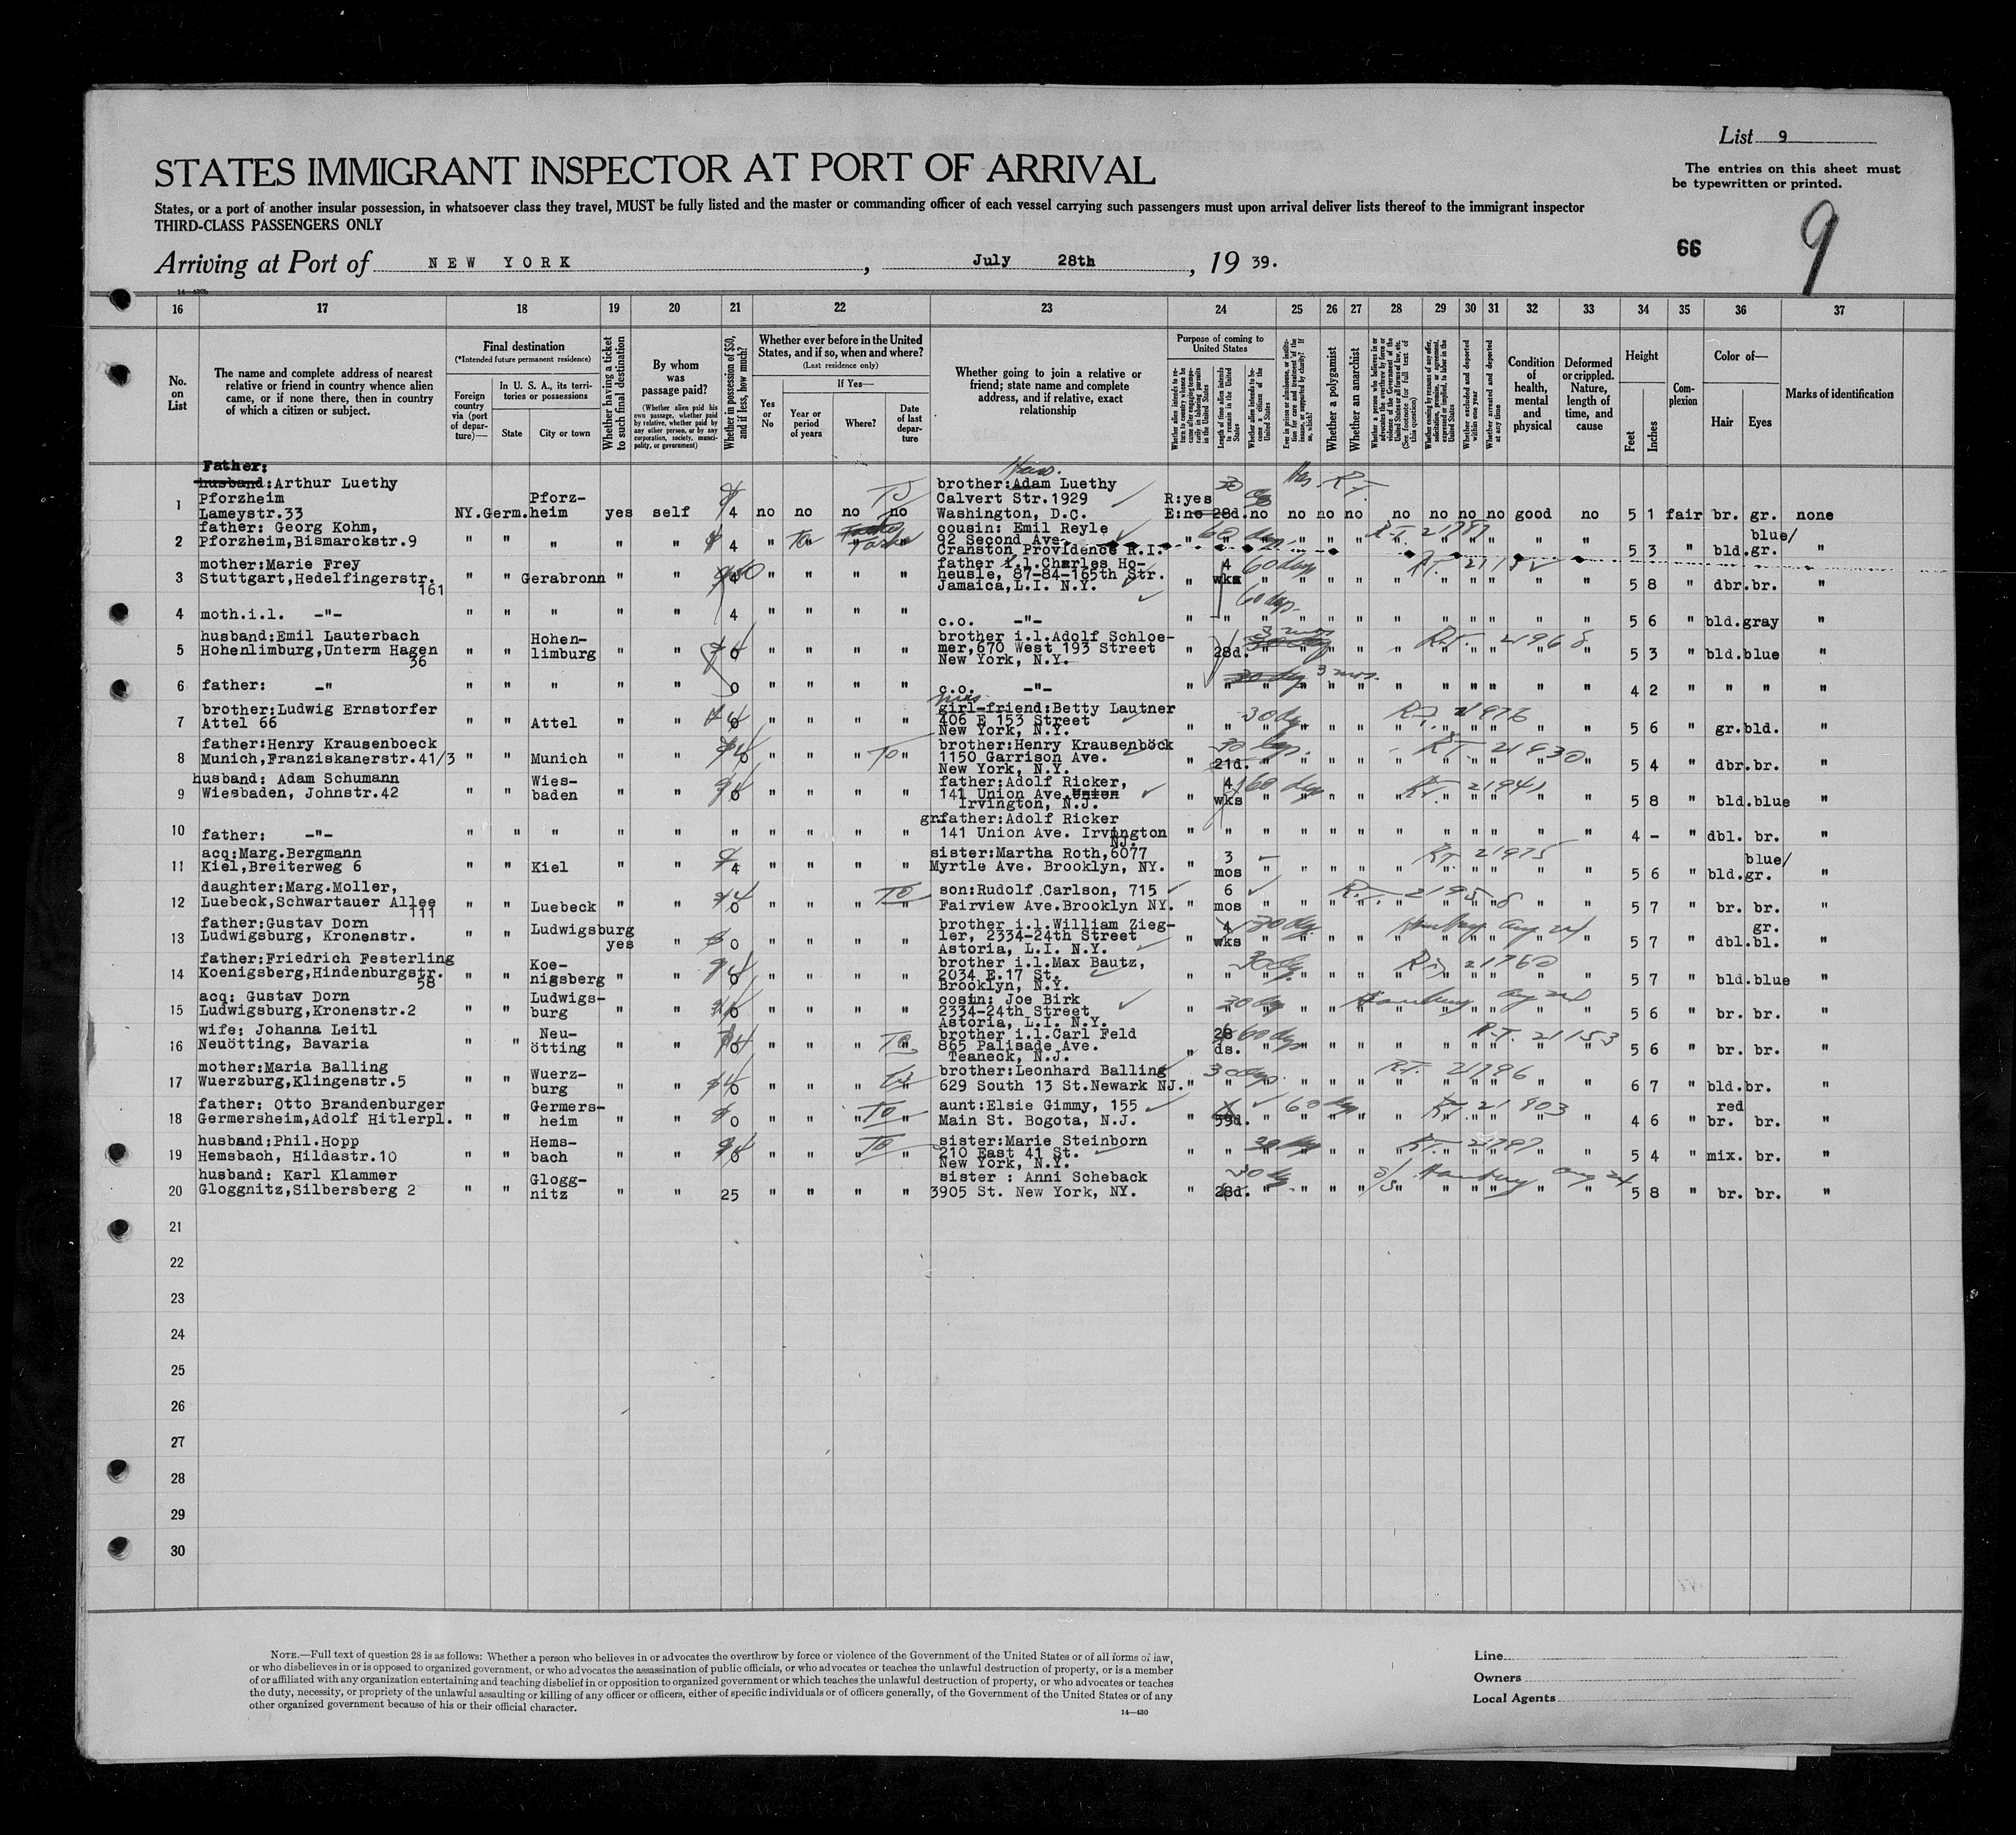 List 9
The entries on this sheet must
be typewritten or printed.
STATES IMMIGRANT INSPECTOR AT PORT OF ARRIVAL
States, or a port of another insular possession, in whatsoever class they travel, MUST be fully listed and the master or commanding officer of each vessel carrying such passengers must upon arrival deliver lists thereof to the immigrant inspector
THIRD-CLASS PASSENGERS ONLY
66
9
Arriving at Port of NEW YORK, July 28th, 19 39.
14-430b
16 17 18 19 20 21 22 23 24 25 26 27 28 29 30 31 32 33 34 35 36 37
No. on List
The name and complete address of nearest relative or friend in country whence alien came, or if none there, then in country of which a citizen or subject.
Final destination
(*Intended future permanent residence)
Foreign country via (port of departure)—
In U. S. A., its territories or possessions
State
City or town
Whether having a ticket to such final destination
By whom was passage paid?
(Whether alien paid his own passage, whether paid by relative, whether paid by any other person, or by any corporation, society, municipality, or government)
Whether in possession of $50, and if less, how much?
Whether ever before in the United States, and if so, when and where?
(Last residence only)
Yes or No
If Yes—
Year or period of years
Where?
Date of last departure
Whether going to join a relative or friend; state name and complete address, and if relative, exact relationship
Purpose of coming to United States
Length of time alien intends to remain in the United States
Whether alien intends to become a citizen of the United States
Whether a polygamist
Whether an anarchist
Whether excluded and deported within one year
Whether arrested and deported at any time
Condition of health, mental and physical
Deformed or crippled. Nature, length of time, and cause
Height
Feet
Inches
Complexion
Color of—
Hair
Eyes
Marks of identification
Father:
1 husband:Arthur Luethy
Pforzheim
Lameystr.33
NY. Germ. Pforz-
heim yes self 4 no no no no
brother:Adam Luethy
Calvert Str.1929
Washington, D.C.
R:yes
E:no 28d. no no no no no no no no good no 5 1 fair br. gr. none
2 father: Georg Kohm,
Pforzheim,Bismarckstr.9
" " " " " 4 "
cousin: Emil Reyle
92 Second Ave.
Cranston Providence R.I.
60 days R.T. 21787
5 3 " bld. blue/
gr. "
3 mother:Marie Frey
Stuttgart,Hedelfingerstr.
161
" " Gerabronn " " 4 " " " "
father i.l.Charles Ho-
heusle, 87-84-165th Str.
Jamaica,L.I. N.Y.
4
wks 60 days
5 8 " dbr. br. "
4 moth.i.l. -"-
" " " " " 4 " " " "
c.o. -"-
60 days
5 6 " bld. gray "
5 husband:Emil Lauterbach
Hohenlimburg,Unterm Hagen
36
" " Hohen-
limburg " " 0 " " " "
brother i.l.Adolf Schloe-
mer,670 West 193 Street
New York, N.Y.
28d. 3 mos R.T. 21968
5 3 " bld. blue "
6 father: -"-
" " " " " 0 " " " "
c.o. -"-
3 mos.
4 2 " " " "
7 brother:Ludwig Ernstorfer
Attel 66
" " Attel " " 0 " " " "
girl-friend:Betty Lautner
406 E 153 Street
New York, N.Y.
30 dys R.T. 21976
5 6 " gr. bld. "
8 father:Henry Krausenboeck
Munich,Franziskanerstr.41/3
" " Munich " " 0 " " " TO "
brother:Henry Krausenböck
1150 Garrison Ave.
New York, N.Y.
21d. R.T. 21830
5 4 " dbr. br. "
9 husband: Adam Schumann
Wiesbaden, Johnstr.42
" " Wies-
baden " " 0 " " " "
father:Adolf Ricker,
141 Union Ave. Union
Irvington, N.J.
4
wks 60 days R.T. 21941
5 8 " bld. blue "
10 father: -"-
" " " " " " " " " "
gr.father:Adolf Ricker
141 Union Ave. Irvington
NJ.
4 - " dbl. br. "
11 acq:Marg.Bergmann
Kiel,Breiterweg 6
" " Kiel " " 4 " " " "
sister:Martha Roth,6077
Myrtle Ave. Brooklyn, NY.
3
mos R.T. 21975
5 6 " bld. blue/
gr. "
12 daughter:Marg.Moller,
Luebeck,Schwartauer Allee
111
" " Luebeck " " 0 " " " TO "
son:Rudolf Carlson, 715
Fairview Ave.Brooklyn NY.
6
mos R.T. 21958
5 7 " br. br. "
13 father:Gustav Dorn
Ludwigsburg, Kronenstr.
" " Ludwigsburg
yes " 0 " " " "
brother i.l.William Zieg-
ler, 2334-24th Street
Astoria, L.I. N.Y.
4
wks 30 dys Hamburg Aug 24
5 7 " dbl. gr.
bl. "
14 father:Friedrich Festerling
Koenigsberg,Hindenburgstr.
58
" " Koe-
nigsberg " " 0 " " " "
brother i.l.Max Bautz,
2034 E.17 St.
Brooklyn, N.Y.
30 dys 21760
5 7 " bld. blue "
15 acq: Gustav Dorn
Ludwigsburg,Kronenstr.2
" " Ludwigs-
burg " " 0 " " " "
cosin: Joe Birk
2334-24th Street
Astoria, L.I. N.Y.
30 dys Hamburg Aug 24
5 6 " br. br. "
16 wife: Johanna Leitl
Neuötting, Bavaria
" " Neu-
ötting " " 0 " " " TO "
brother i.l.Carl Feld
865 Palisade Ave.
Teaneck, N.J.
28
ds. 60 days R.T. 21153
5 6 " br. br. "
17 mother:Maria Balling
Wuerzburg,Klingenstr.5
" " Wuerz-
burg " " 0 " " " "
brother:Leonhard Balling
629 South 13 St.Newark NJ.
30 dys. R.T. 21796
6 7 " bld. br. "
18 father: Otto Brandenburger
Germersheim,Adolf Hitlerpl.
" " Germers-
heim " " 0 " " " TO "
aunt:Elsie Gimmy, 155
Main St. Bogota, N.J.
59d. 60 days R.T. 21803
4 6 " red
br. br. "
19 husband:Phil.Hopp
Hemsbach, Hildastr.10
" " Hems-
bach " " 0 " " " TO "
sister:Marie Steinborn
210 East 41 St.
New York, N.Y.
30 dys R.T. 21797
5 4 " mix. br. "
20 husband: Karl Klammer
Gloggnitz,Silbersberg 2
" " Glogg-
nitz " " 25 " " " "
sister : Anni Scheback
3905 St. New York, NY.
28d. 30 dys S/S Hamburg Aug 24
5 8 " br. br. "
21
22
23
24
25
26
27
28
29
30
NOTE.—Full text of question 28 is as follows: Whether a person who believes in or advocates the overthrow by force or violence of the Government of the United States or of all forms of law,
or who disbelieves in or is opposed to organized government, or who advocates the assassination of public officials, or who advocates or teaches the unlawful destruction of property, or is a member
of or affiliated with any organization entertaining and teaching disbelief in or opposition to organized government or which teaches the unlawful destruction of property, or who advocates or teaches
the duty, necessity, or propriety of the unlawful assaulting or killing of any officer or officers, either of specific individuals or of officers generally, of the Government of the United States or of any
other organized government because of his or their official character.
14—430
Line
Owners
Local Agents